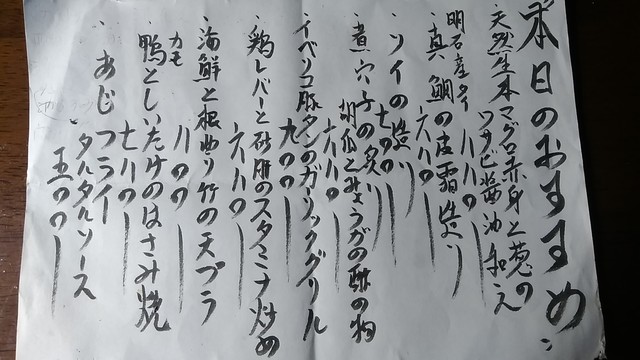 本日のおすすめ
・天然生本マグロ赤身と葱の
ワサビ醤油和え
八八〇
明石産タイ
・真鯛の皮霜造り
六八〇
・ソイの造り
七〇〇
・煮穴子の炙り
胡瓜とみょうがの酢の物
六八〇
イベリコ豚タンのガリックグリル
九〇〇
・鶏レバーと砂肝のスタミナ炒め
六八〇
・海鮮と根曲り竹の天プラ
八〇〇
カモ
・鴨としいたけのはさみ焼
七八〇
・あじフライ
タルタルソース
五〇〇